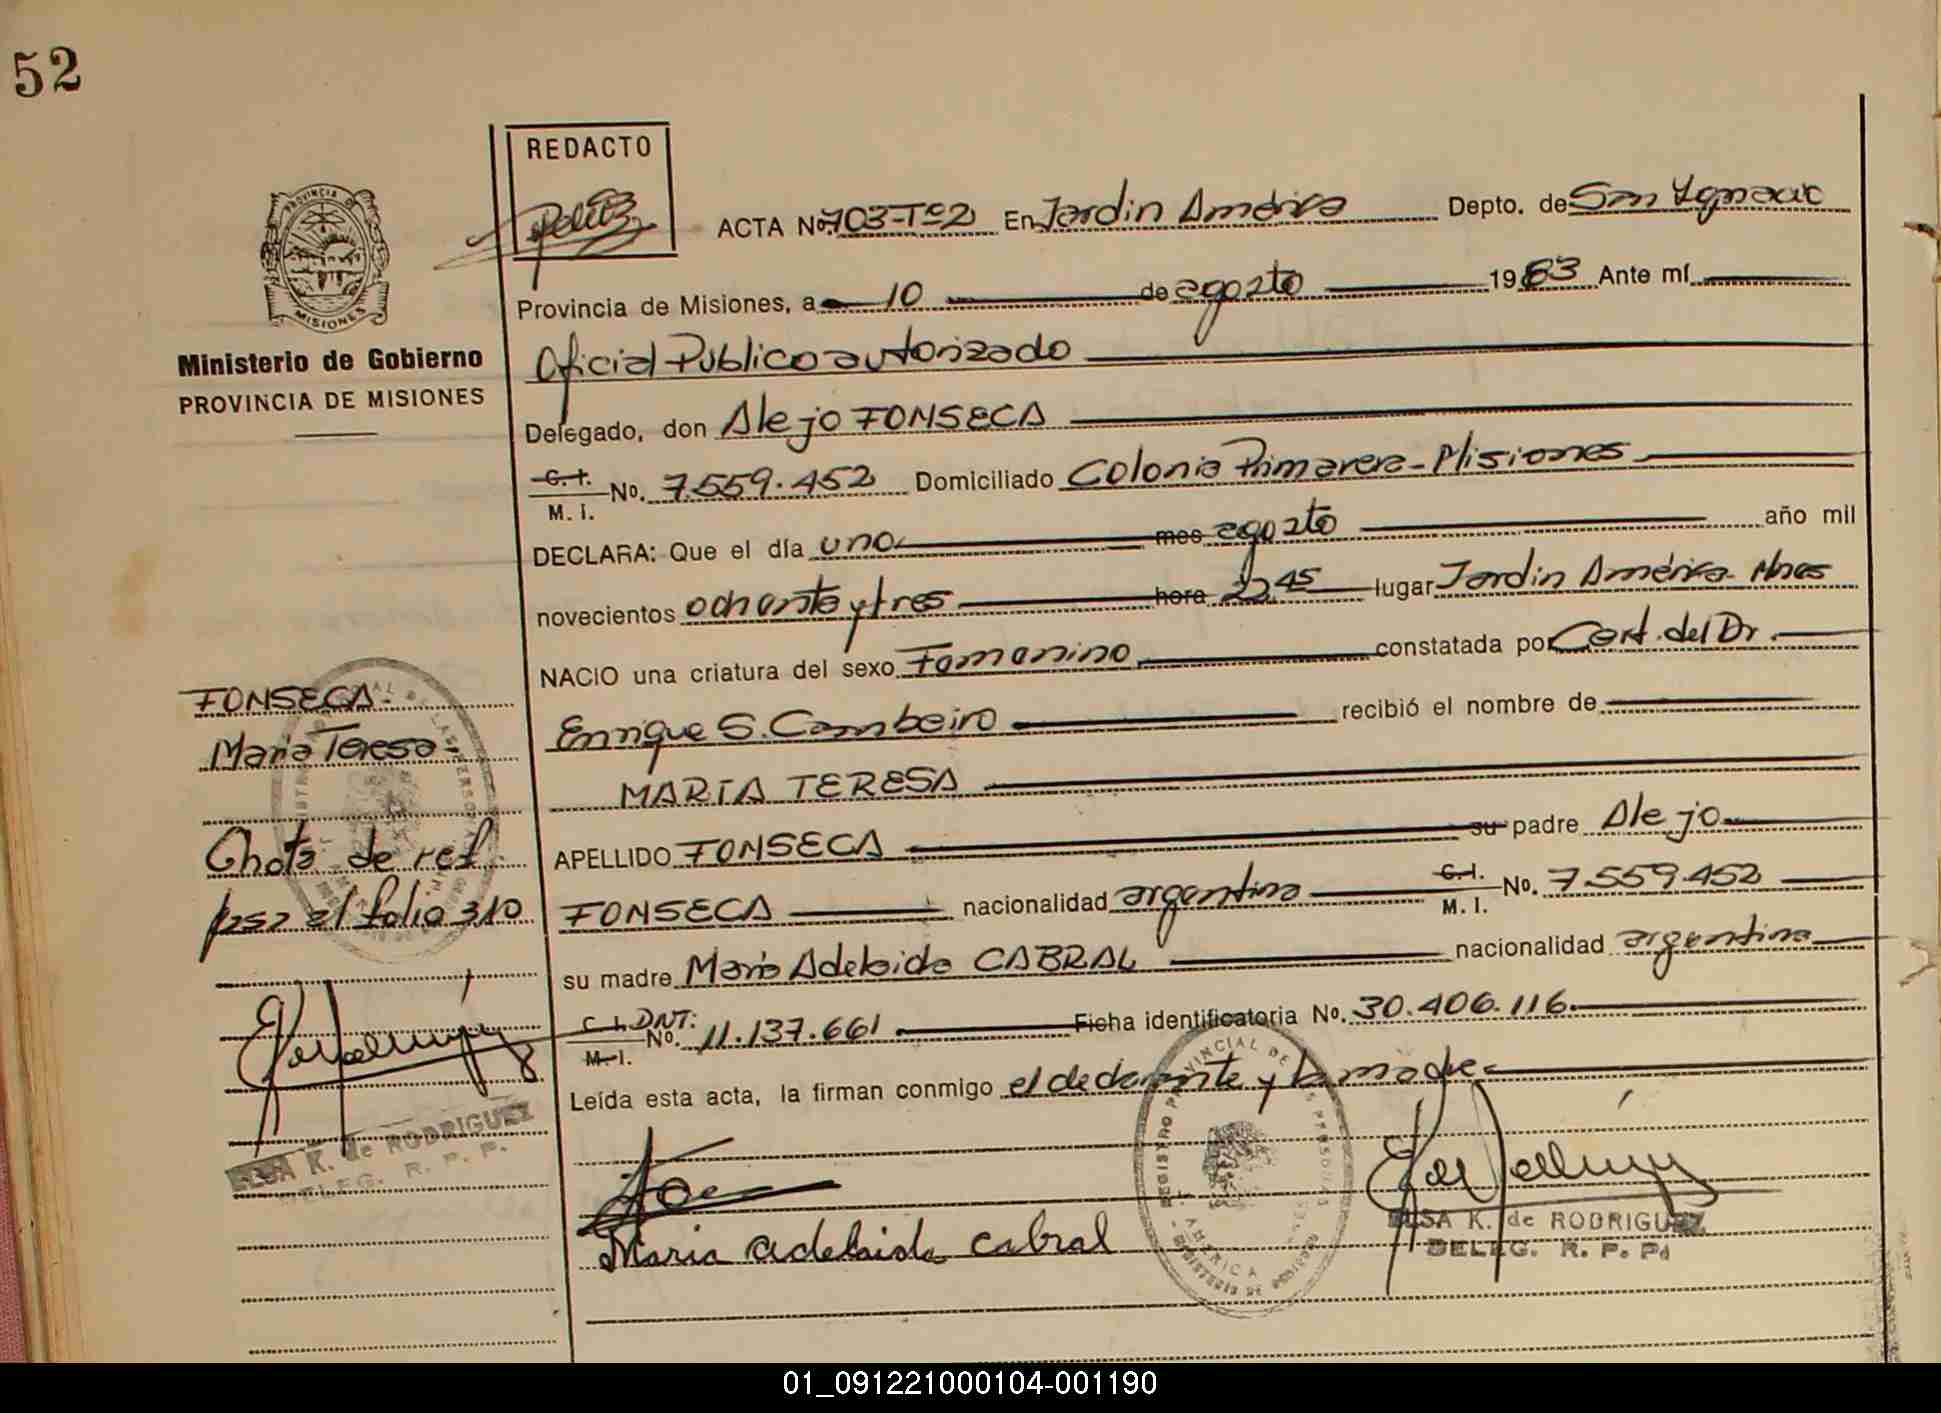 52
REDACTO
PROVINCIA DE
MISIONES
Ministerio de Gobierno
PROVINCIA DE MISIONES
ACTA No. 703-Tº2 En Jardin América Depto. de San Ignacio
Provincia de Misiones, a 10 de agosto 1983 Ante mí
Oficial Publico autorizado
Delegado, don Alejo FONSECA
C. I.
M. I. No. 7.559.452 Domiciliado Colonia Primavera-Misiones
DECLARA: Que el día uno mes agosto año mil
novecientos ochenta y tres hora 22.45 lugar Jardin América-Mnes
NACIO una criatura del sexo Femenino constatada por Cert. del Dr.
Enrique S. Cambeiro recibió el nombre de
MARIA TERESA
APELLIDO FONSECA su padre Alejo
FONSECA nacionalidad argentina C. I. M. I. No. 7.559.452
su madre Maria Adelaida CABRAL nacionalidad argentina
C. I. DNI: M. I. No. 11.137.661 Ficha identificatoria No. 30.406.116
Leída esta acta, la firman conmigo el declarante y la madre
Maria adelaida cabral
ELSA K. de RODRIGUEZ
DELEG. R. P. P.
FONSECA-
Maria Teresa-
de ref.
pasa al folio 310
ELSA K. de RODRIGUEZ
DELEG. R. P. P.
01_091221000104-001190